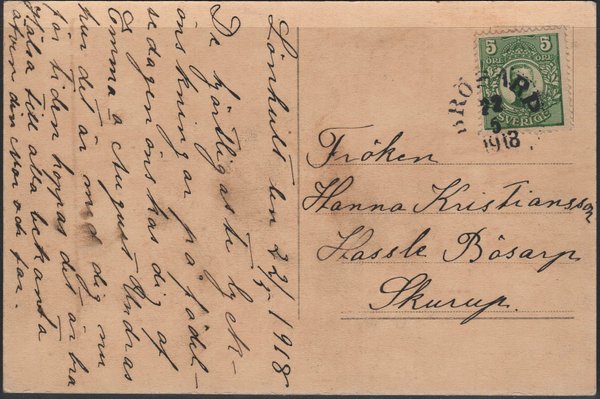 Lönhult den 22/5 1918
De hjärtligaste lyck-
önskningar på födel-
sedagen önskas dig af
Emma o August Andras
hur det är med dig nu
för tiden hoppas det är bra
hjälsa till alla bekanta
även din Mor och far.
5 5
ÖRE ÖRE
SVERIGE
BRÖSARP
22
5
1918
Fröken
Hanna Kristiansson
Hassle Bösarp
Skurup.